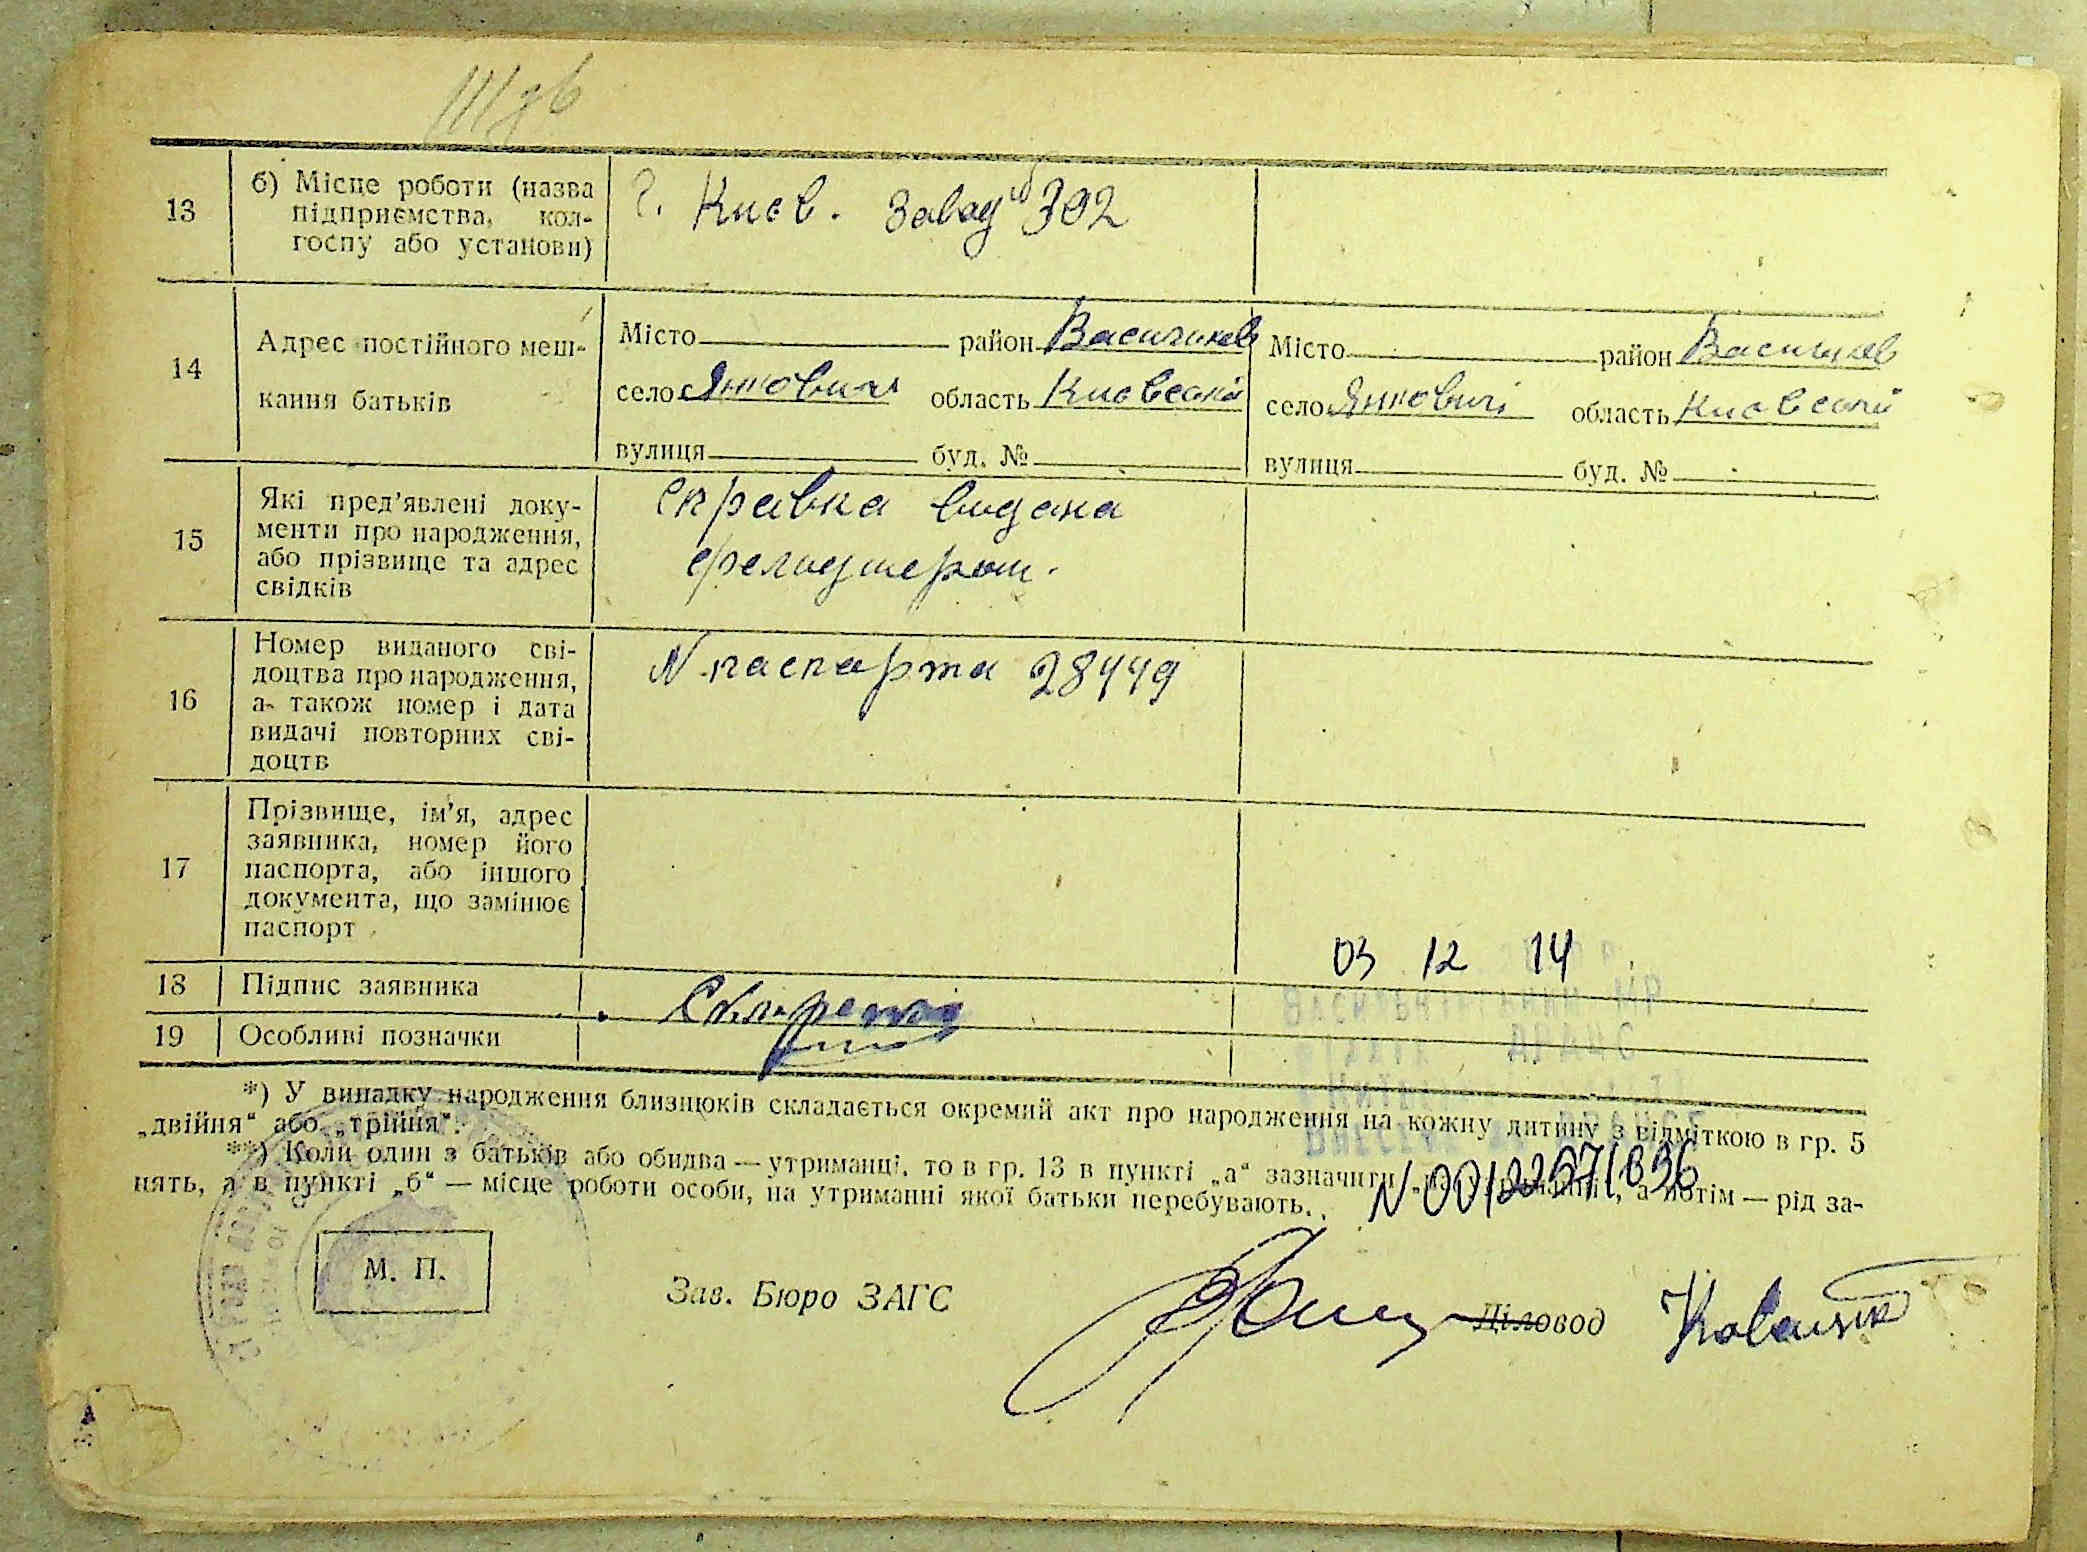 13
б) Місце роботи (назва
підприємства, кол-
госпу або установи)
г. Киев. Завод № 302
14
Адрес постійного меш-
кання батьків
Місто район Васильков
село Янковичі область Киевской
вулиця буд. №
Місто район Васильков
село Янковичі область Киевской
вулиця буд. №
15
Які пред’явлені доку-
менти про народження,
або прізвище та адрес
свідків
Справка видана
фельдшером.
16
Номер виданого сві-
доцтва про народження,
а також номер і дата
видачі повторних сві-
доцтв
N паспорта 28449
17
Прізвище, ім’я, адрес
заявника, номер його
паспорта, або іншого
документа, що замінює
паспорт
03 12 14
18
Підпис заявника
19
Особливі позначки
*) У випадку народження близнюків складається окремий акт про народження на кожну дитину з відміткою в гр. 5
„двійня“ або „трійня“.
**) Коли один з батьків або обидва — утриманці, то в гр. 13 в пункті „а“ зазначити , а потім — рід за-
нять, а в пункті „б“ — місце роботи особи, на утриманні якої батьки перебувають.
N 00122671896
М. П.
Зав. Бюро ЗАГС
Діловод